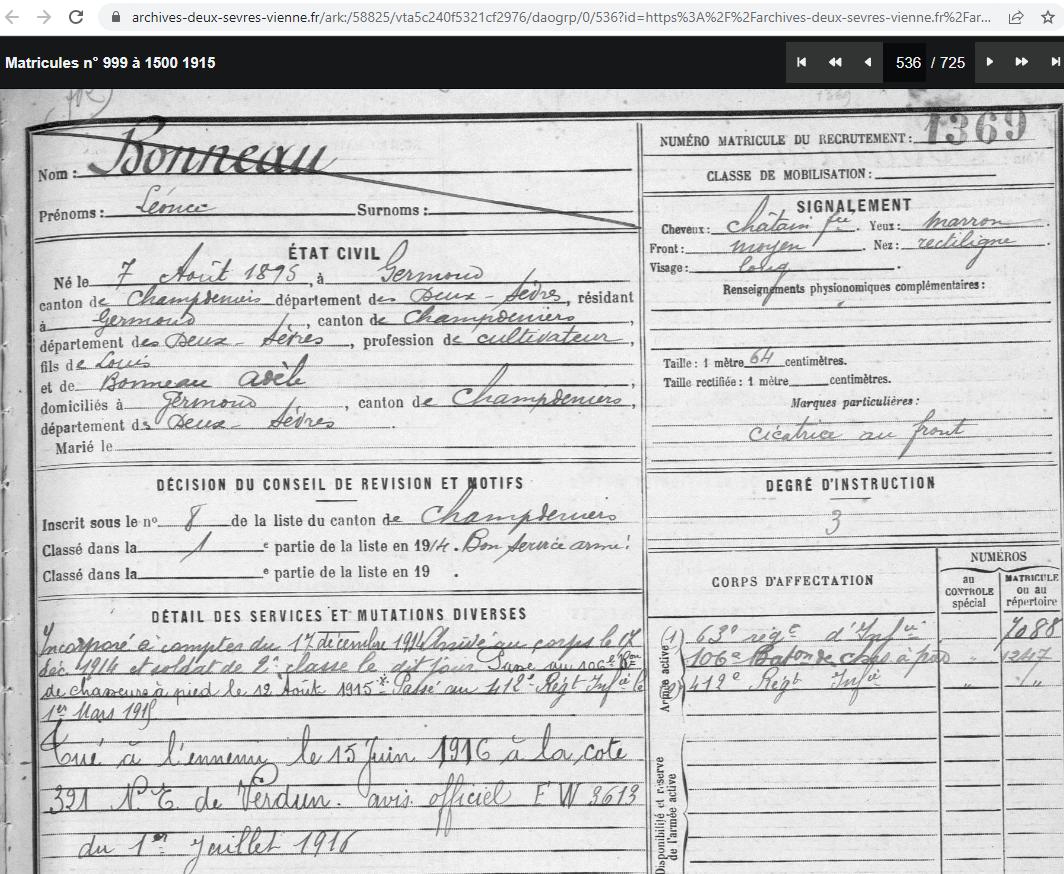 archives-deux-sevres-vienne.fr/ark:/58825/vta5c240f5321cf2976/daogrp/0/536?id=https%3A%2F%2Farchives-deux-sevres-vienne.fr%2Far...
Matricules n° 999 à 1500 1915
536 / 725
Nom : Bonneau
Prénoms : Léonce Surnoms :
NUMÉRO MATRICULE DU RECRUTEMENT : 1369
CLASSE DE MOBILISATION :
ÉTAT CIVIL
Né le 7 Août 1895, à Germond
canton de Champdeniers département des Deux-Sèvres, résidant
à Germond, canton de Champdeniers,
département des Deux-Sèvres, profession de cultivateur,
fils de Louis
et de Bonneau Adèle,
domiciliés à Germond, canton de Champdeniers,
département des Deux-Sèvres.
Marié le
SIGNALEMENT
Cheveux : châtain fcé. Yeux : marron.
Front : moyen. Nez : rectiligne
Visage : long.
Renseignements physionomiques complémentaires :
Taille : 1 mètre 64 centimètres.
Taille rectifiée : 1 mètre centimètres.
Marques particulières :
cicatrice au front
DÉCISION DU CONSEIL DE REVISION ET MOTIFS
Inscrit sous le no 8 de la liste du canton de Champdeniers
Classé dans la 1 e partie de la liste en 1914. Bon service armé.
Classé dans la e partie de la liste en 19 .
DEGRÉ D'INSTRUCTION
3
DÉTAIL DES SERVICES ET MUTATIONS DIVERSES
Incorporé à compter du 17 décembre 1914 Arrivé au corps le 17
déc 1914 et soldat de 2e classe le dit jour Passé au 106e Bon
de chasseurs à pied le 12 Août 1915 Passé au 412e Régt Infie le
1er Mars 1916
Tué à l'ennemi le 15 Juin 1916 à la cote
321 N. E. de Verdun. avis officiel F W 3613
du 1er Juillet 1916
CORPS D'AFFECTATION
NUMÉROS
au CONTROLE spécial
MATRICULE ou au répertoire
Armée active
(1) 63e régt d'Infie 7088
106e Baton de chas à pied " 1247
(2) 412e Régt Infie " "
Disponibilité et réserve
de l'armée active